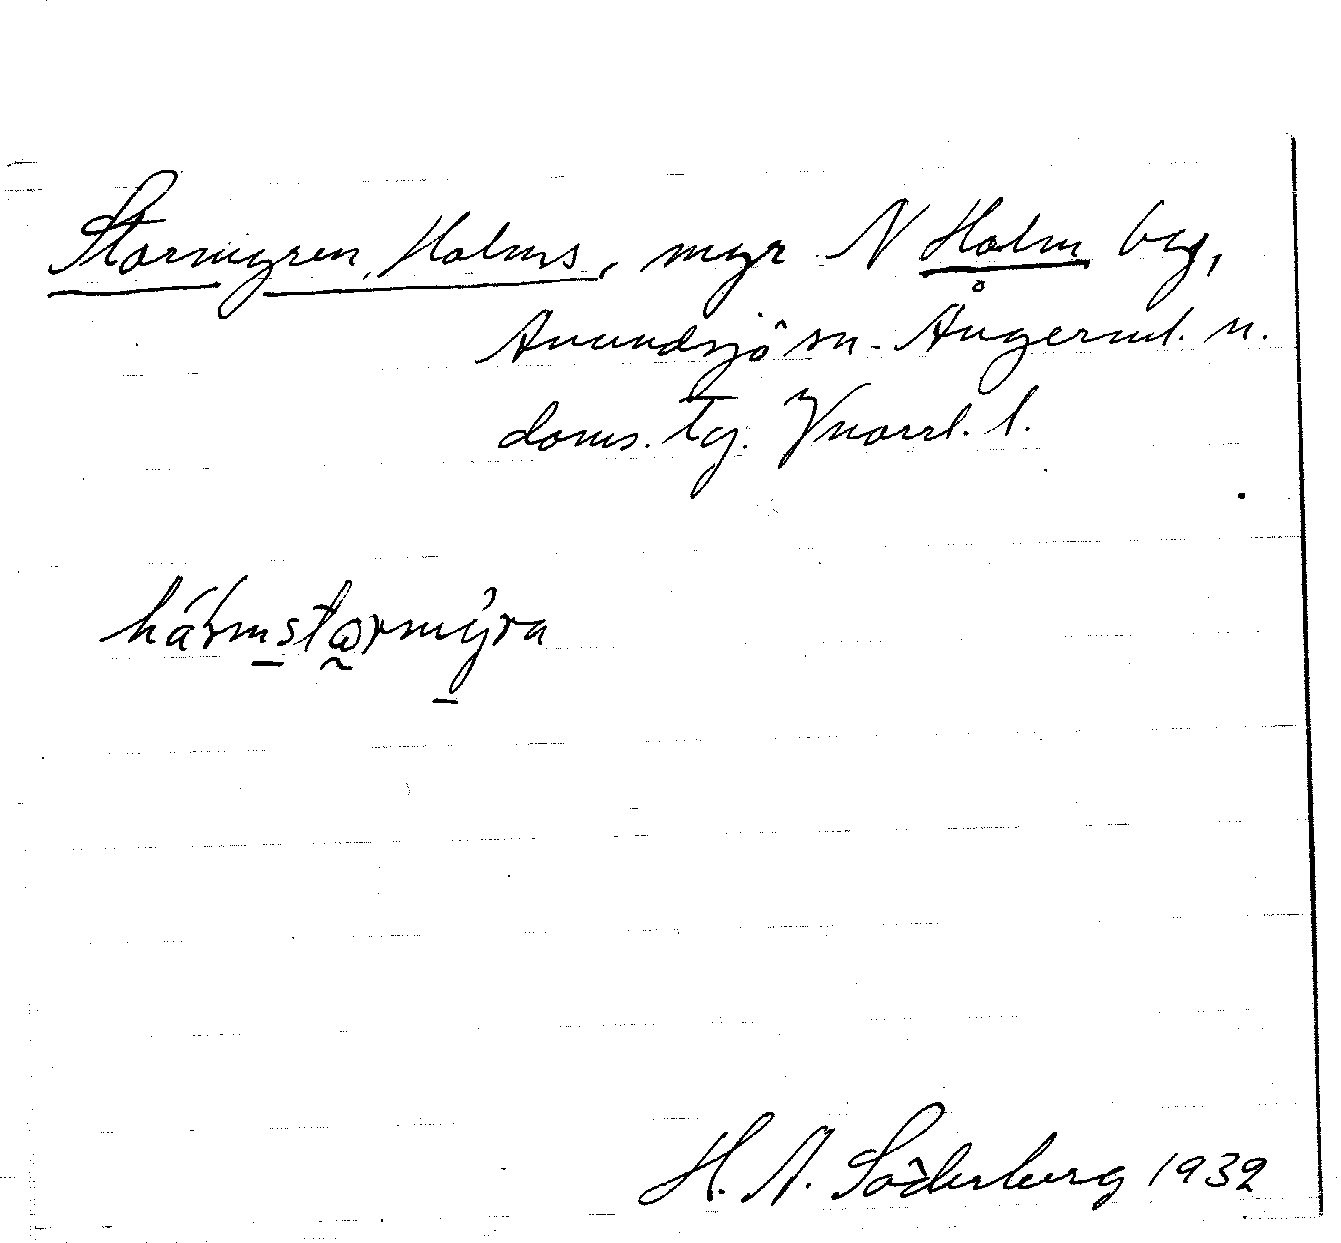 Stormyren, Holms, myr N Holm by,
Anundsjö sn. Ångerml. n.
doms. tg. Vnorrl. l.
hálmstormýra
H. A. Söderberg 1932